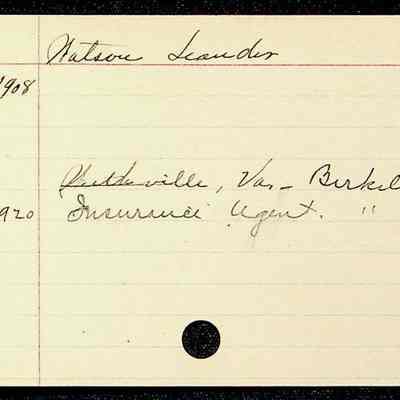 Watson Leander
1908
ville, Va. - Birkel
1920 Insurance Agent. "